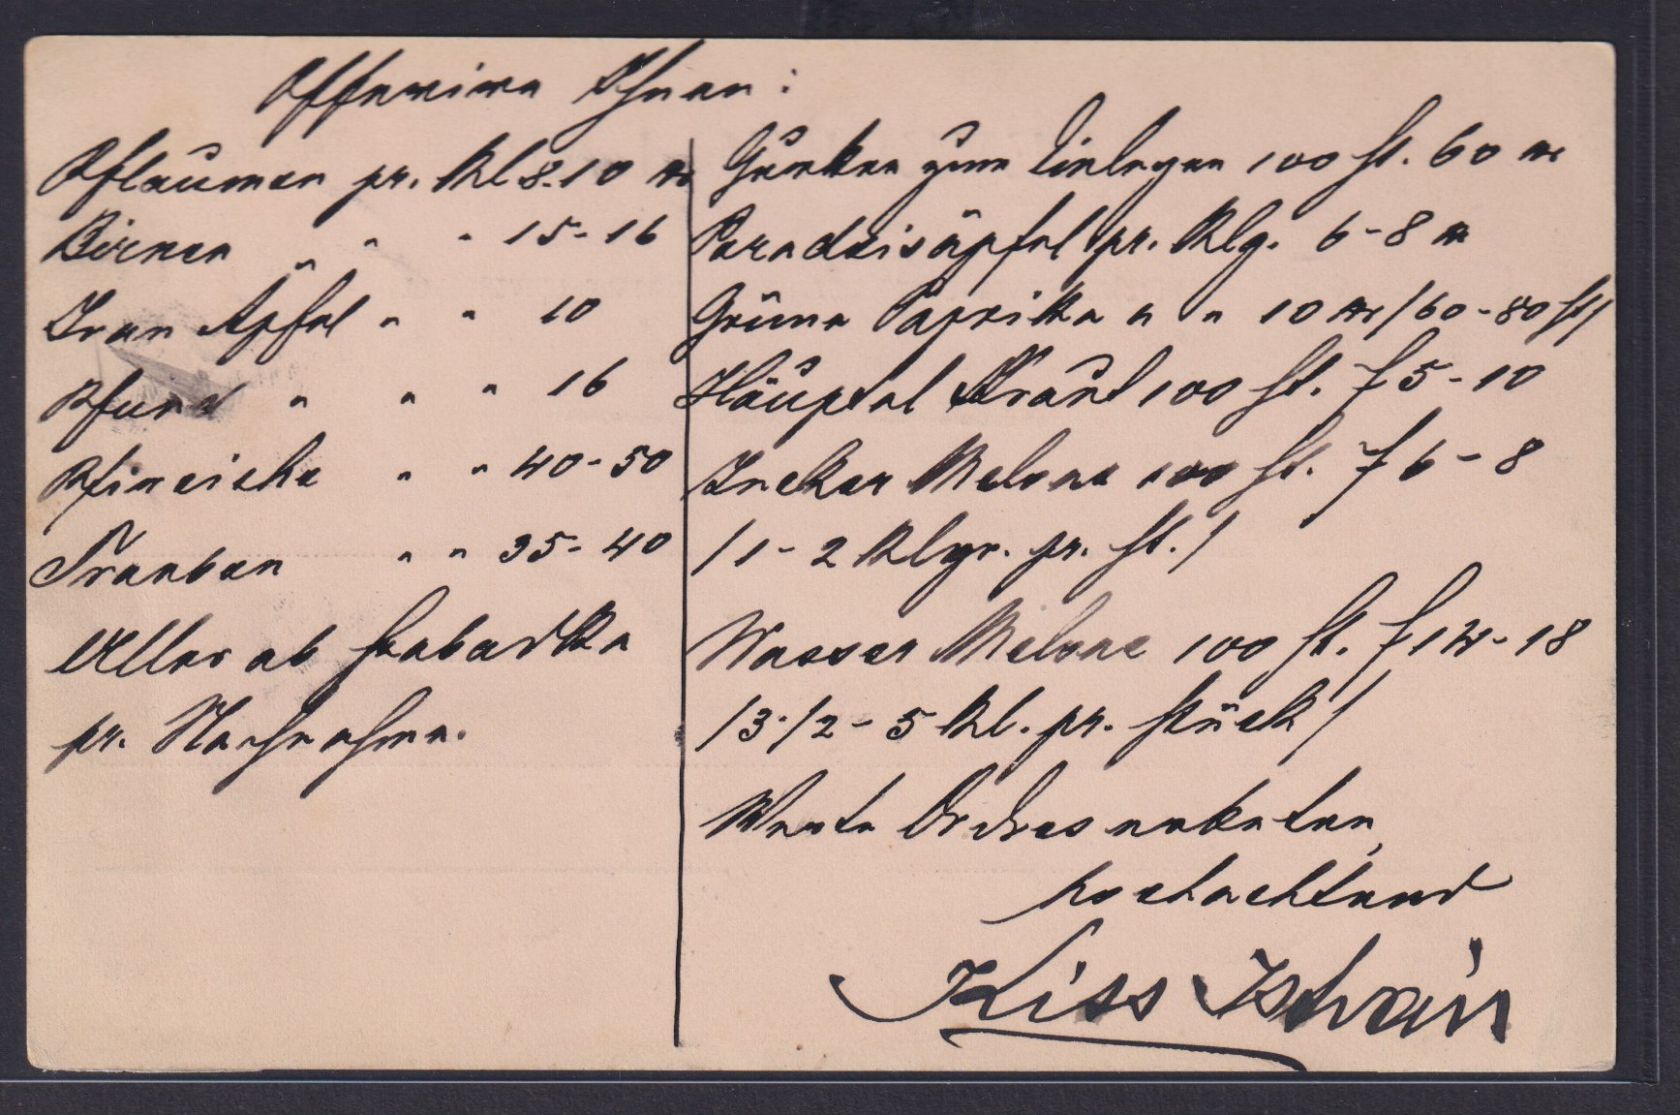 Offerire Ihnen:
Pflaumen pr. Kl 8-10 xr
Birnen " " " 15-16
Äpfel " " 10
" " " 16
Pfirsiche " " 40-50
Trauben " " 35-40
Alles ab Szabadka
pr. Nachnahme.
Gurken zum Einlegen 100 St. 60 xr
Paradeisäpfel pr. Klg. 6-8 xr
Grüne Paprika " " 10 xr /60-80 St/
Häuptel Kraut 100 St. f 5-10
Zucker Melone 100 St. f 6-8
/1-2 Klgr. pr. St./
Wasser Melone 100 St. f 14-18
/3 1/2-5 Kl. pr. Stück/
Werte Ordres erbeten,
hochachtend
Kiss István